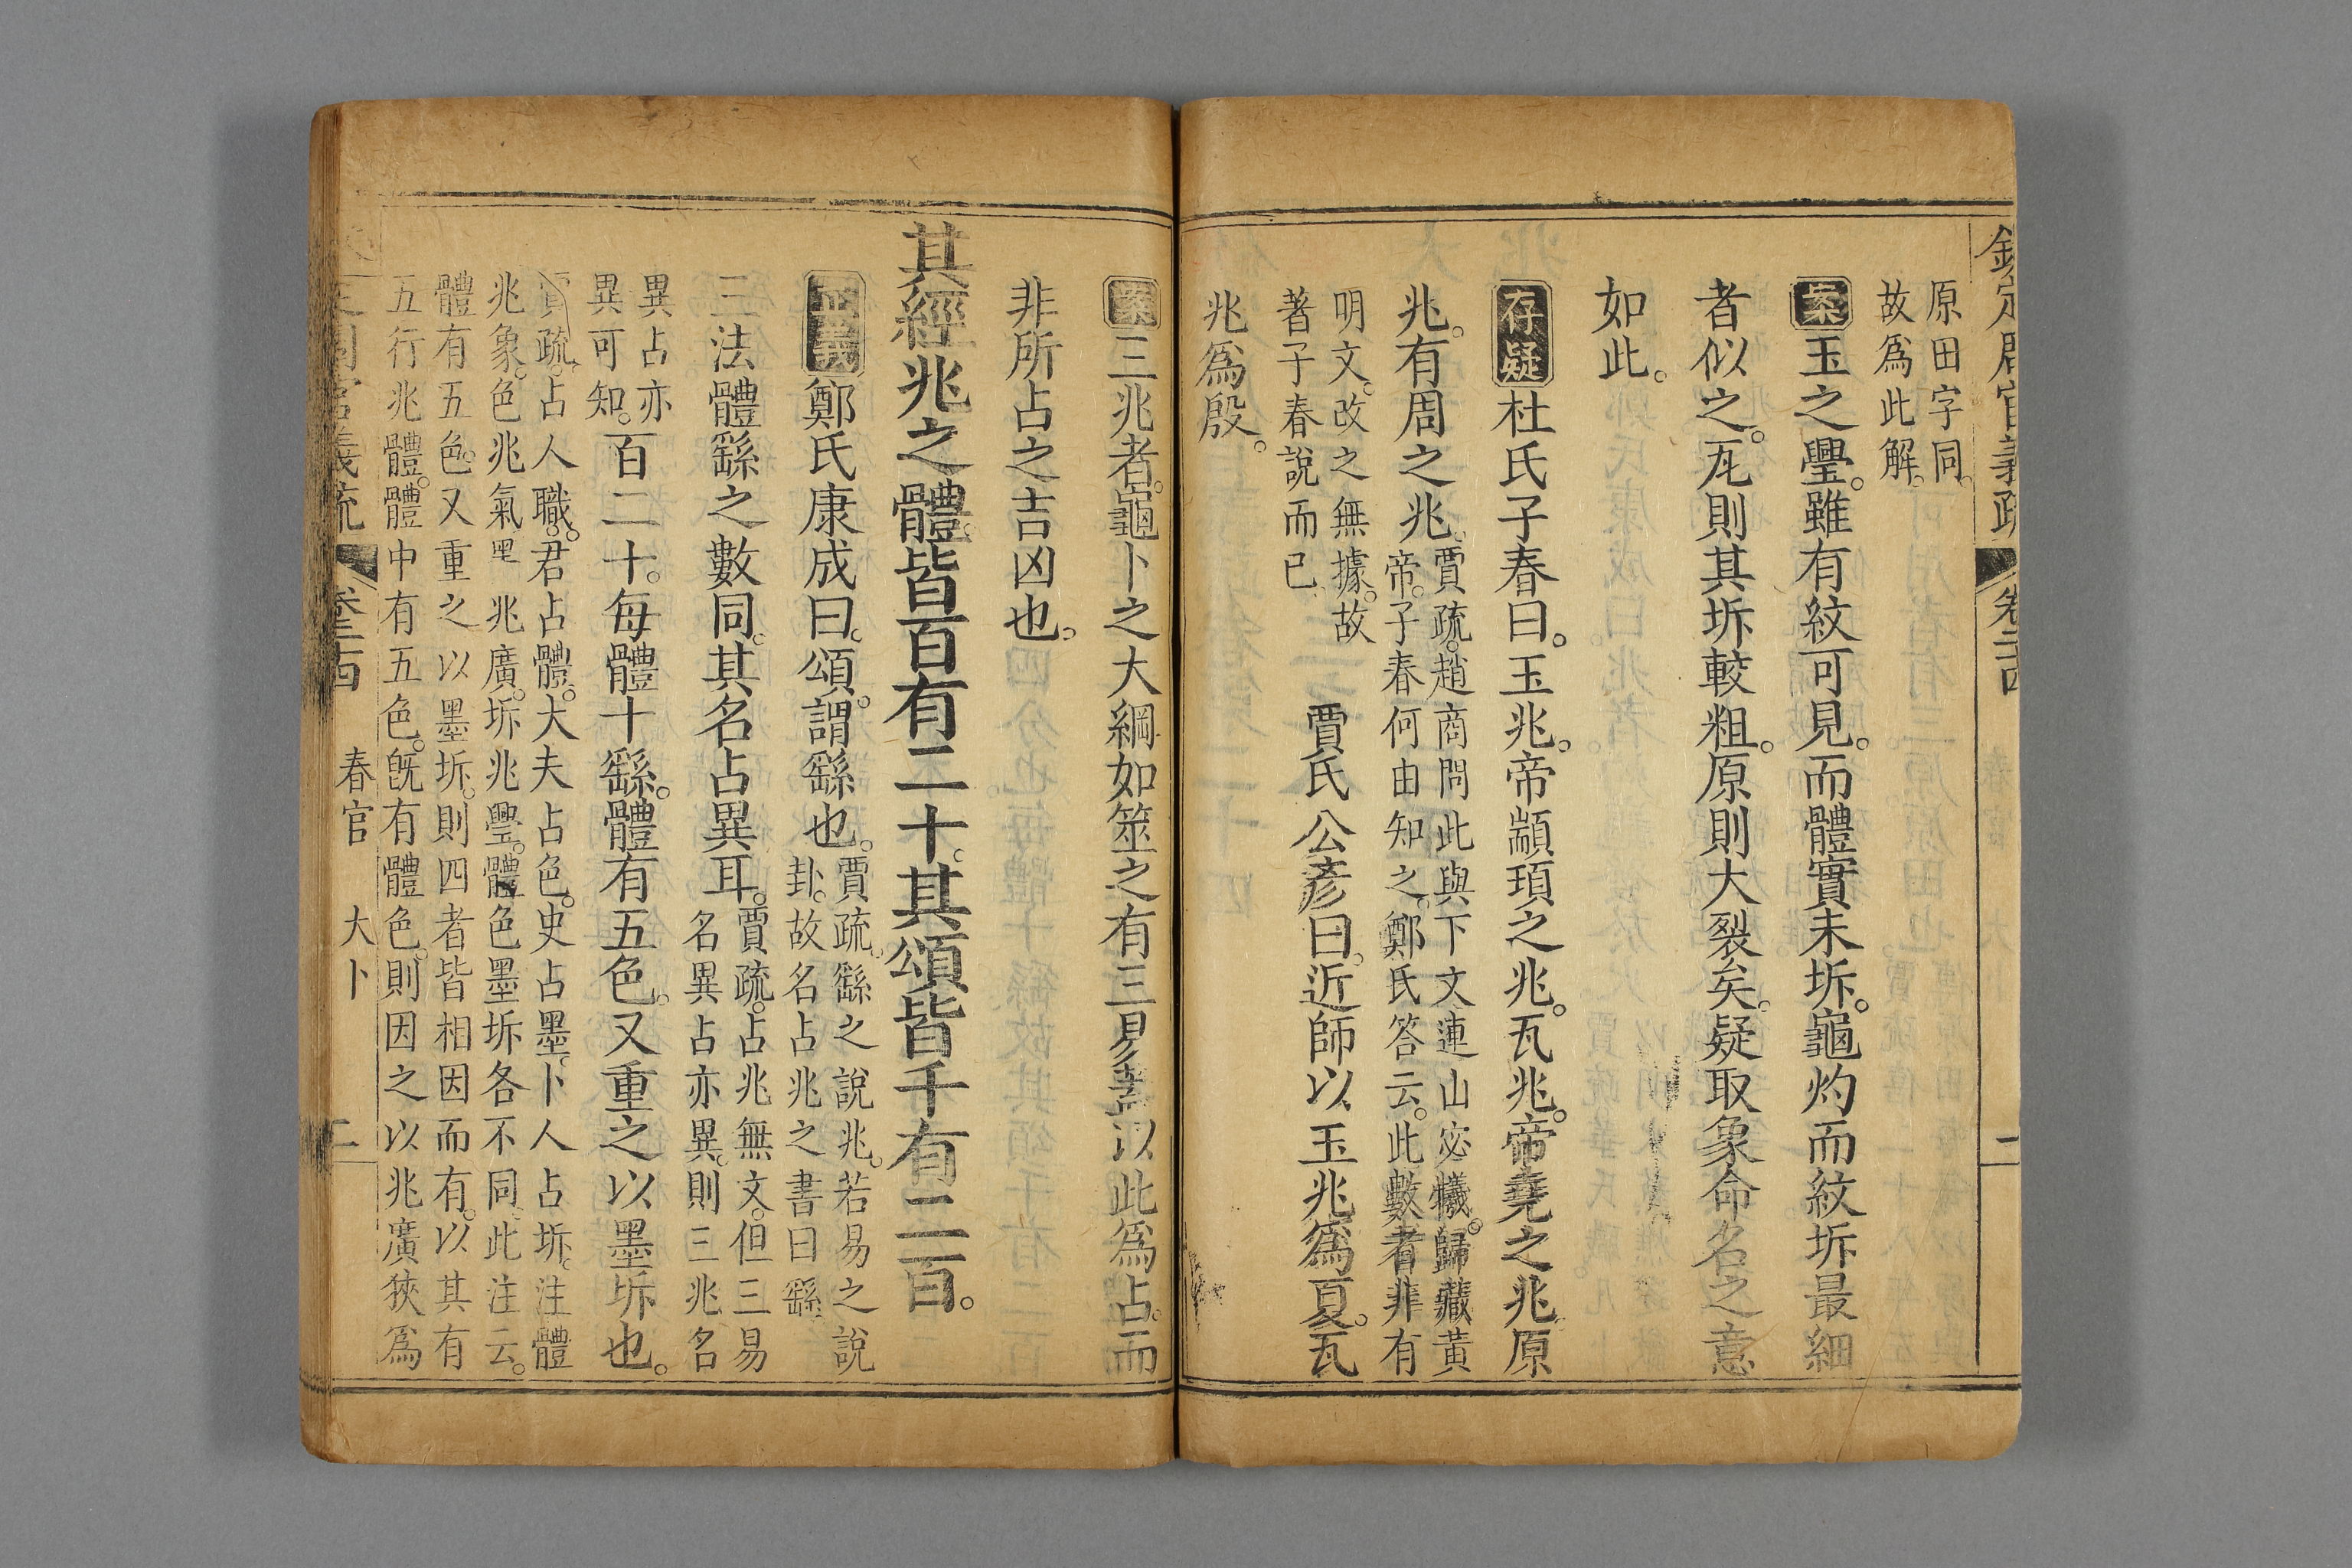 欽定周官義疏 卷二十四 二
原田字同。
故爲此解。
案玉之璺。雖有紋可見。而體實未坼。龜灼而紋坼最細
者似之。瓦則其坼較粗。原則大裂矣。疑取象命名之意
如此。
存疑杜氏子春曰。玉兆。帝顓頊之兆。瓦兆。帝堯之兆。原
兆。有周之兆。
賈疏。趙商問此與下文連山宓犧。歸藏黃
帝。子春何由知之。鄭氏答云。此數者非有
明文。改之無據。故
著子春說而已。
賈氏公彥曰。近師以玉兆爲夏。瓦
兆爲殷。
案三兆者。龜卜之大綱如筮之有三易。蓋以此爲占。而
非所占之吉凶也。
其經兆之體。皆百有二十。其頌皆千有二百。
正義鄭氏康成曰。頌。謂繇也。
賈疏。繇之說兆。若易之說
卦。故名占兆之書曰繇。
三法體繇之數同。其名占異耳。
賈疏。占兆無文。但三易
名異占亦異。則三兆名
異占亦
異可知。
百二十。每體十繇。體有五色。又重之以墨坼也。
賈疏。占人職。君占體。大夫占色。史占墨。卜人占坼。注體
兆象。色兆氣 兆廣。坼兆璺。體色墨坼各不同。此注云。
體有五色。又重之以墨坼。則四者皆相因而有。以其有
五行兆體。體中有五色。旣有體色。則因之以兆廣狹爲
定周官義疏 卷二十四 春官 大卜 二